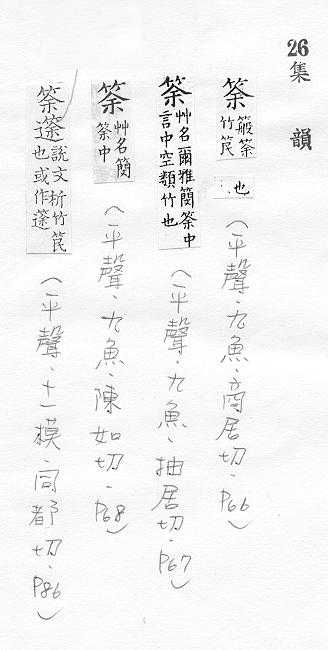 26 集韻
筡 筡
竹笢
也
(平聲.九魚.商居切.P66)
筡 艸名爾雅簢筡中
言中空類竹也
(平聲.九魚.抽居切.P67)
筡 艸名簢
筡中
(平聲.九魚.陳如切.P68)
筡 說文析竹笢
也或作
(平聲.十一模.同都切.P86)